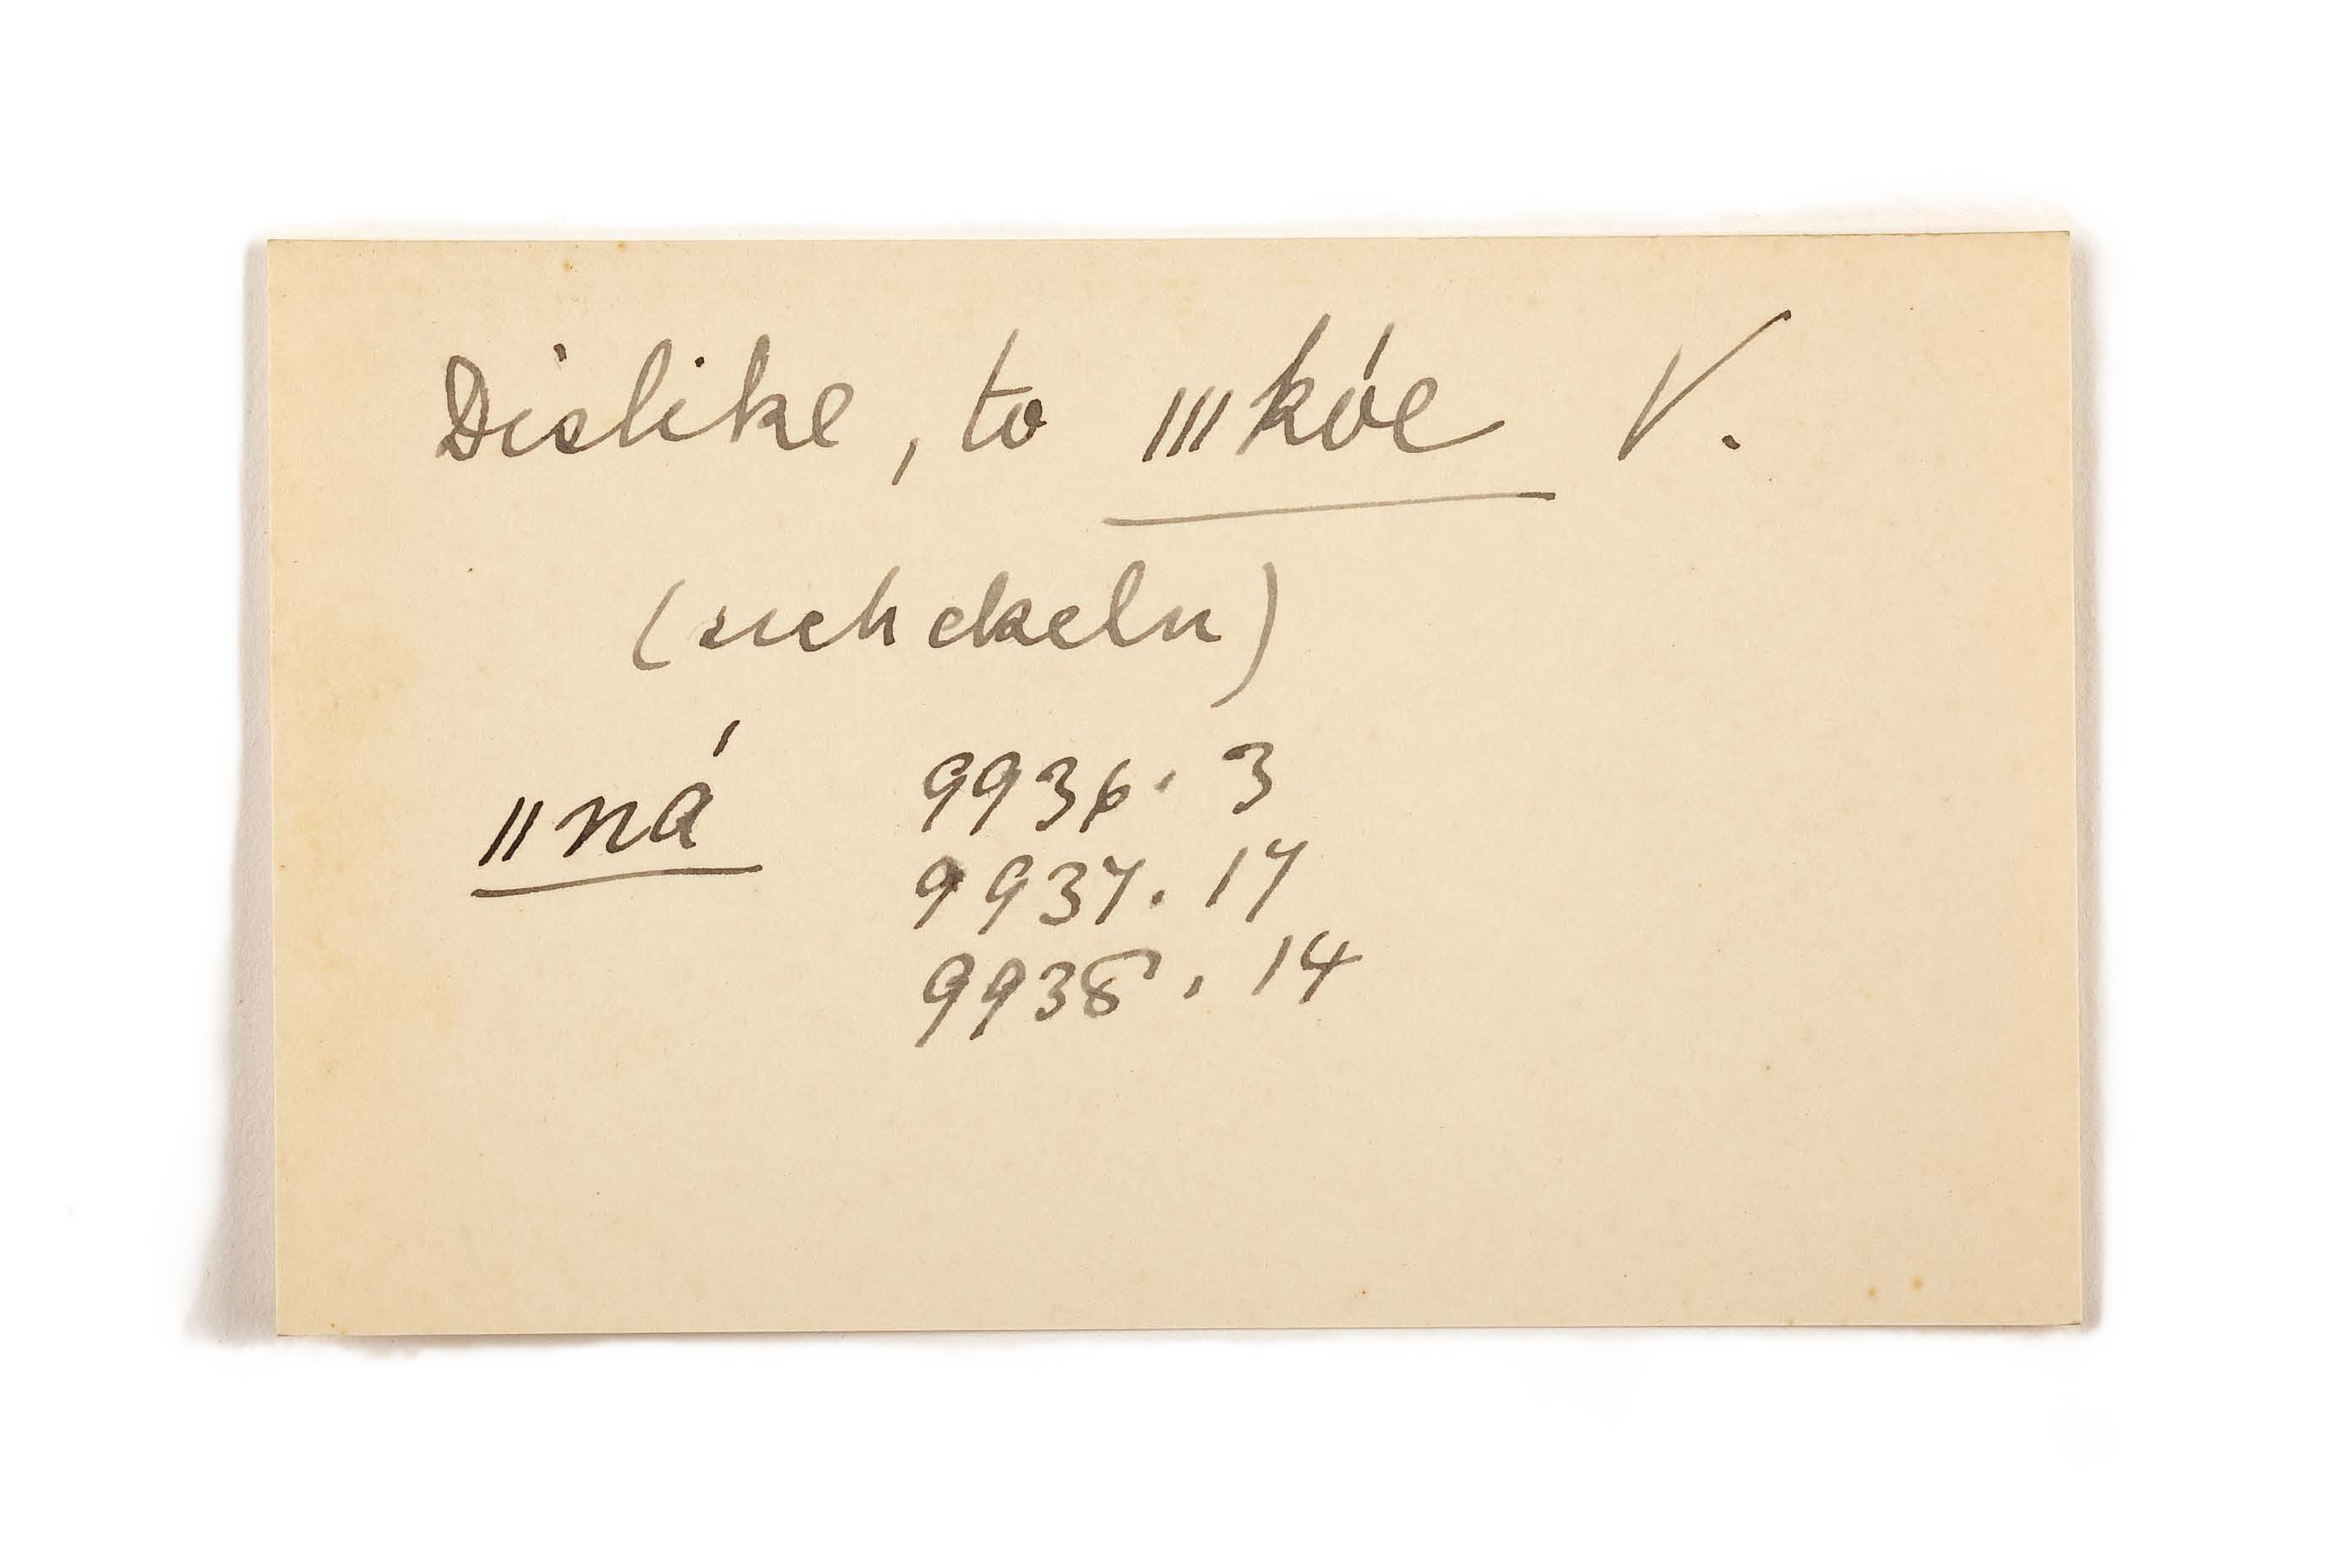 Dislike, to |||kóe V.
(sich ekeln)
||ná 9936. 3
9937. 17
9938. 14